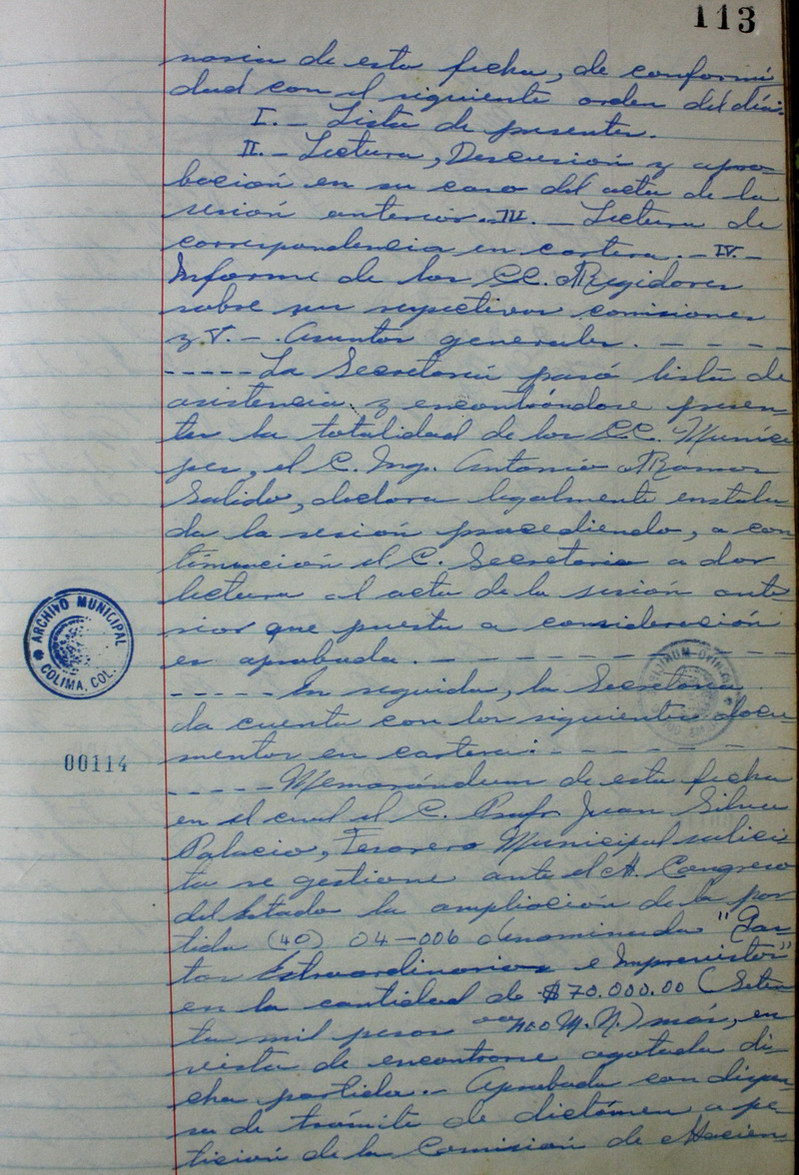 113
naria de esta fecha, de conformi
dad con el siguiente orden del día:
I.- Lista de presentes.
II.- Lectura, Discusión y apro-
bación en su caso del acta de la
sesión anterior. III.- Lectura de
correspondencia en cartera.- IV.-
Informe de los CC. Regidores
sobre sus respectivas comisiones
y V.- Asuntos generales. - - - -
- - - - - La Secretaría pasó lista de
asistencia y encontrándose presen-
tes la totalidad de los CC. Muníci
pes, el C. Ing. Antonio Ramos
Salido, declara legalmente instala-
da la sesión procediendo, a con-
tinuación el C. Secretario a dar
lectura al acta de la sesión ante
rior que puesta a consideración
es aprobada. - - - - - - - - - -
- - - - - En seguida, la Secretaría
da cuenta con los siguientes docu-
mentos en cartera: - - - - - - -
- - - - - Memorándum de esta fecha
en el cual el C. Profr. Juan Silva
Palacio, Tesorero Municipal solici-
ta se gestione ante el H. Congreso
del Estado la ampliación de la par
tida (40) 04-006 denominada "Gas-
tos Extraordinarios e Imprevistos"
en la cantidad de $70.000.00 (Seten
ta mil pesos 00/100 M.N.) más, en
vista de encontrarse agotada di-
cha partida.- Aprobada con dispen
sa de trámite de dictámen a pe-
tición de la Comisión de Hacien-
ARCHIVO MUNICIPAL
COLIMA, COL.
00114